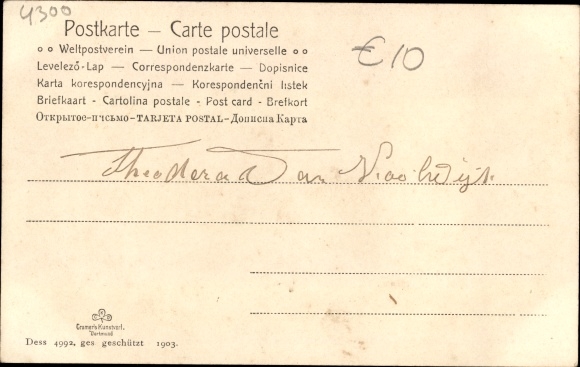 4300
Postkarte — Carte postale
€10
Weltpostverein — Union postale universelle
Levelező-Lap — Correspondenzkarte — Dopisnice
Karta korespondencyjna — Korespondenční lístek
Briefkaart - Cartolina postale - Post card - Brefkort
Открытое-письмо-TARJETA POSTAL-Дописна Карта
Theodora Van
Cramers Kunstanst.
Dortmund
Dess 4992, ges geschützt 1903.